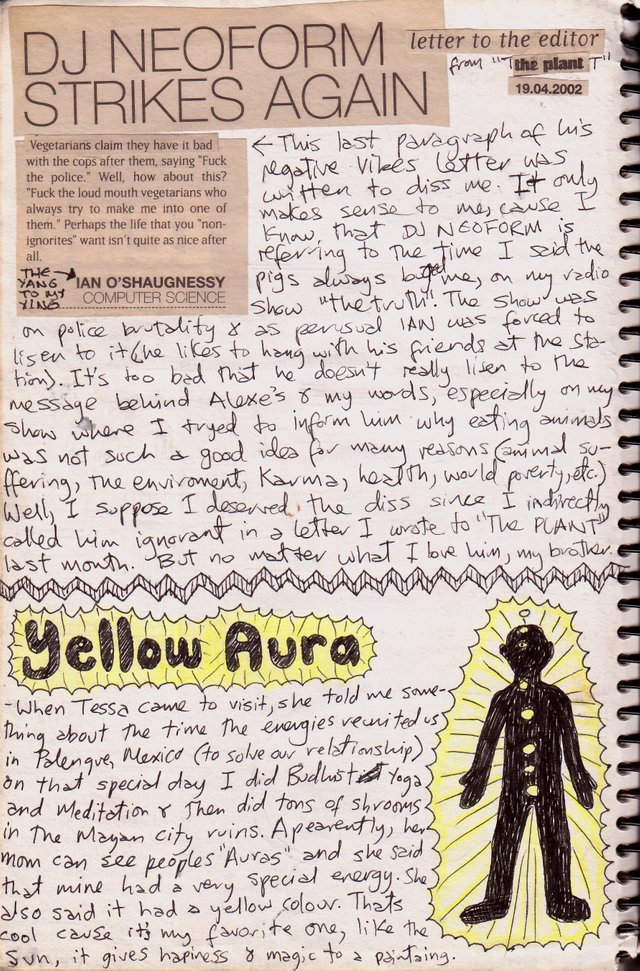 DJ NEOFORM
STRIKES AGAIN
letter to the editor
from "T the plant T"
19.04.2002
Vegetarians claim they have it bad
with the cops after them, saying "Fuck
the police." Well, how about this?
"Fuck the loud mouth vegetarians who
always try to make me into one of
them." Perhaps the life that you "non-
ignorites" want isn't quite as nice after
all.
THE
YANG
TO MY
YING
IAN O'SHAUGNESSY
COMPUTER SCIENCE
← This last paragraph of his
negative vibes letter was
written to diss me. It only
makes sense to me, cause I
know that DJ NEOFORM is
referring to the time I said the
pigs always bug me, on my radio
show "the truth". The show was
on police brutality & as perusual IAN was forced to
lisen to it (he likes to hang with his friends at the sta-
tion). It's too bad that he doesn't really lisen to the
message behind Alexe's & my words, especially on my
show where I tryed to inform him why eating animals
was not such a good idea for many reasons (animal su-
ffering, the enviroment, Karma, health, world poverty, etc.)
Well, I suppose I deserved the diss since I indirectly
called him ignorant in a letter I wrote to "The PLANT"
last month. But no matter what I love him, my brother.
Yellow Aura
-When Tessa came to visit, she told me some-
thing about the time the energies reunited us
in Palenque, Mexico (to solve our relationship)
On that special day I did Budhist Yoga
and Meditation & then did tons of shrooms
in the Mayan city ruins. Apearently, her
mom can see peoples "Auras" and she said
that mine had a very special energy. She
also said it had a yellow colour. Thats
cool cause it's my favorite one, like the
Sun, it gives hapiness & magic to a paintaing.